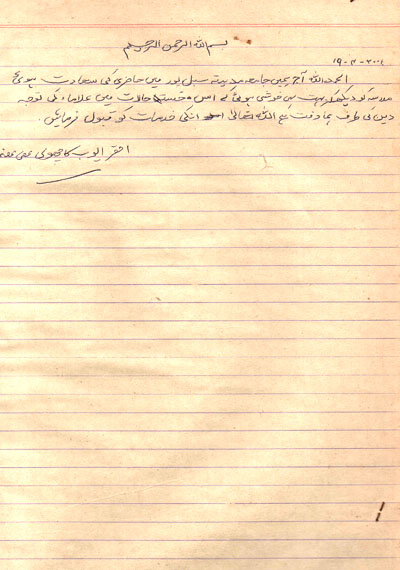 بسم اللہ الرحمن الرحیم
۱۹-۲-۲۰۰۱
الحمد للہ آج ہمیں جامعہ مدینۃ سبل پور میں حاضری کی سعادت ہوئی
مدرسہ کو دیکھکر بہت ہی خوشی ہوئی کہ اس خستہ حالات میں علماء کی توجہ
دین کی طرف ہے اللہ تعالیٰ انکی خدمات کو قبول فرمائیں۔
احقر ایوب کاچھوی عفی عنہ